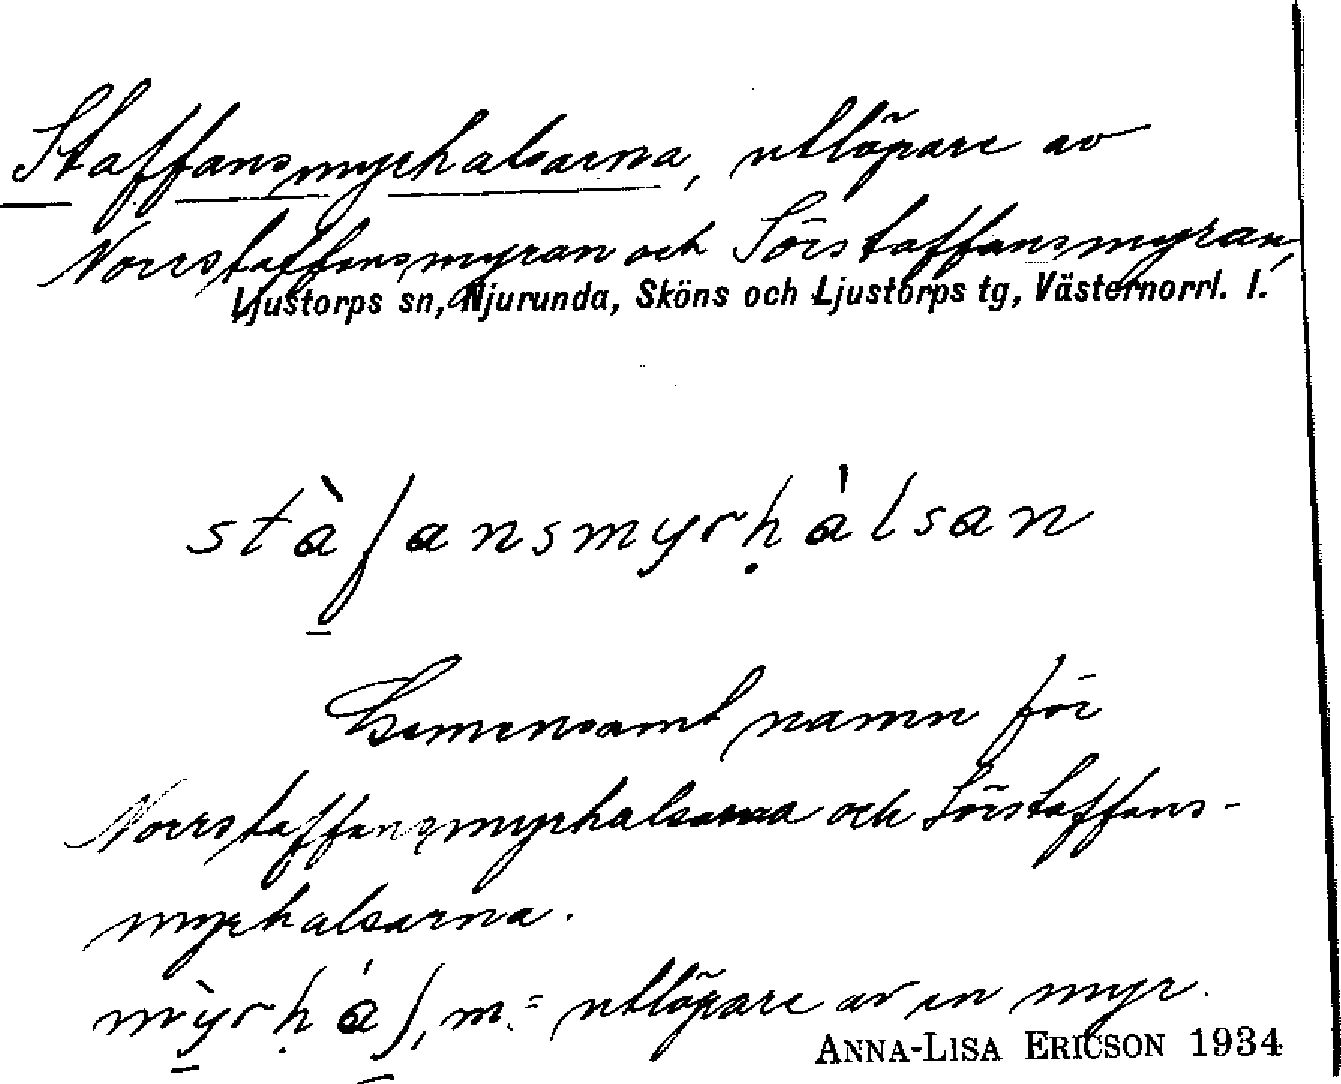 Staffansmyrhalsarna, utlöpare av
Norrstaffansmyran och Sörstaffansmyran,
Ljustorps sn, Njurunda, Sköns och Ljustorps tg, Västernorrl. l.
stàfansmyrḥálsan
Gemensamt namn för
Norrstaffansmyrhalsarna och Sörstaffans-
myrhalsarna.
mỳrḥáʃ, m. = utlöpare av en myr.
ANNA-LISA ERICSON 1934